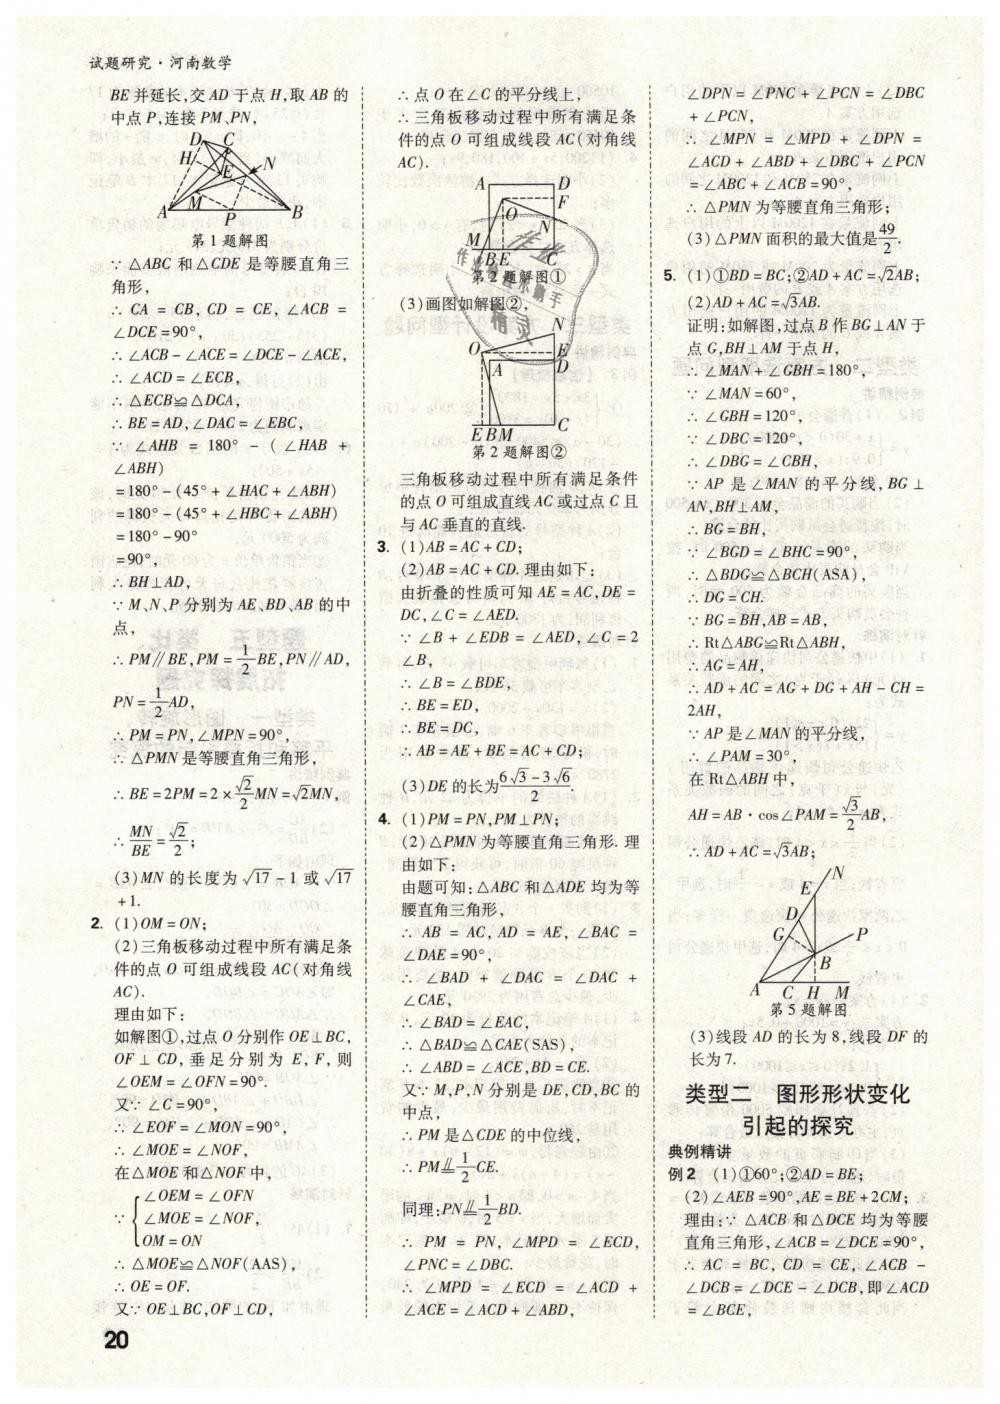 试题研究·河南数学
BE 并延长,交 AD 于点 H,取 AB 的
中点 P,连接 PM、PN,
D C
H N
E
M
A P B
第 1 题解图
∵ △ABC 和 △CDE 是等腰直角三
角形,
∴ CA = CB, CD = CE, ∠ACB =
∠DCE = 90°,
∴ ∠ACB - ∠ACE = ∠DCE - ∠ACE,
∴ ∠ACD = ∠ECB,
∴ △ECB≌△DCA,
∴ BE = AD,∠DAC = ∠EBC,
∵ ∠AHB = 180° - ( ∠HAB +
∠ABH)
= 180° - (45° + ∠HAC + ∠ABH)
= 180° - (45° + ∠HBC + ∠ABH)
= 180° - 90°
= 90°,
∴ BH⊥AD,
∵ M、N、P 分别为 AE、BD、AB 的中
点,
∴ PM∥BE,PM = 1/2 BE,PN∥AD,
PN = 1/2 AD,
∴ PM = PN,∠MPN = 90°,
∴ △PMN 是等腰直角三角形,
∴ BE = 2PM = 2 × √2/2 MN = √2MN,
∴ MN/BE = √2/2;
(3) MN 的长度为 √17 - 1 或 √17
+ 1.
2. (1) OM = ON;
(2) 三角板移动过程中所有满足条
件的点 O 可组成线段 AC(对角线
AC).
理由如下:
如解图①,过点 O 分别作 OE⊥BC,
OF⊥CD,垂足分别为 E,F,则
∠OEM = ∠OFN = 90°.
又∵ ∠C = 90°,
∴ ∠EOF = ∠MON = 90°,
∴ ∠MOE = ∠NOF,
在△MOE 和△NOF 中,
∠OEM = ∠OFN
∵ { ∠MOE = ∠NOF,
OM = ON
∴ △MOE≌△NOF(AAS),
∴ OE = OF.
又∵ OE⊥BC,OF⊥CD,
20
∴ 点 O 在∠C 的平分线上,
∴ 三角板移动过程中所有满足条
件的点 O 可组成线段 AC(对角线
AC).
A D
O F
N
M
B E C
第 2 题解图①
(3) 画图如解图②,
N
O E
A D
E B M C
第 2 题解图②
三角板移动过程中所有满足条件
的点 O 可组成直线 AC 或过点 C 且
与 AC 垂直的直线.
3. (1) AB = AC + CD;
(2) AB = AC + CD. 理由如下:
由折叠的性质可知 AE = AC,DE =
DC,∠C = ∠AED.
∵ ∠B + ∠EDB = ∠AED,∠C = 2
∠B,
∴ ∠B = ∠BDE,
∴ BE = ED,
∴ BE = DC,
∴ AB = AE + BE = AC + CD;
(3) DE 的长为 (6√3 - 3√6)/2.
4. (1) PM = PN,PM⊥PN;
(2) △PMN 为等腰直角三角形. 理
由如下:
由题可知:△ABC 和△ADE 均为等
腰直角三角形,
∴ AB = AC, AD = AE, ∠BAC =
∠DAE = 90°,
∴ ∠BAD + ∠DAC = ∠DAC +
∠CAE,
∴ ∠BAD = ∠EAC,
∴ △BAD≌△CAE(SAS),
∴ ∠ABD = ∠ACE,BD = CE.
又∵ M、P、N 分别是 DE、CD、BC 的
中点,
∴ PM 是△CDE 的中位线,
∴ PM∥= 1/2 CE.
同理:PN∥= 1/2 BD.
∴ PM = PN, ∠MPD = ∠ECD,
∠PNC = ∠DBC.
∴ ∠MPD = ∠ECD = ∠ACD +
∠ACE = ∠ACD + ∠ABD,
∠DPN = ∠PNC + ∠PCN = ∠DBC
+ ∠PCN,
∴ ∠MPN = ∠MPD + ∠DPN =
∠ACD + ∠ABD + ∠DBC + ∠PCN
= ∠ABC + ∠ACB = 90°,
∴ △PMN 为等腰直角三角形;
(3) △PMN 面积的最大值是 49/2.
5. (1) ①BD = BC;②AD + AC = √2AB;
(2) AD + AC = √3AB.
证明:如解图,过点 B 作 BG⊥AN 于
点 G,BH⊥AM 于点 H,
∴ ∠MAN + ∠GBH = 180°,
∵ ∠MAN = 60°,
∴ ∠GBH = 120°,
∵ ∠DBC = 120°,
∴ ∠DBG = ∠CBH,
∵ AP 是∠MAN 的平分线,BG⊥
AN,BH⊥AM,
∴ BG = BH,
∴ ∠BGD = ∠BHC = 90°,
∴ △BDG≌△BCH(ASA),
∴ DG = CH.
∵ BG = BH,AB = AB,
∴ Rt△ABG≌Rt△ABH,
∴ AG = AH,
∴ AD + AC = AG + DG + AH - CH =
2AH,
∵ AP 是∠MAN 的平分线,
∴ ∠PAM = 30°,
在 Rt△ABH 中,
AH = AB·cos∠PAM = √3/2 AB,
∴ AD + AC = √3AB;
N
E
D
G P
B
A C H M
第 5 题解图
(3) 线段 AD 的长为 8,线段 DF 的
长为 7.
类型二 图形形状变化
引起的探究
典例精讲
例 2 (1) ①60°;②AD = BE;
(2) ∠AEB = 90°,AE = BE + 2CM;
理由:∵ △ACB 和△DCE 均为等腰
直角三角形,∠ACB = ∠DCE = 90°,
∴ AC = BC, CD = CE, ∠ACB -
∠DCB = ∠DCE - ∠DCB,即∠ACD
= ∠BCE,